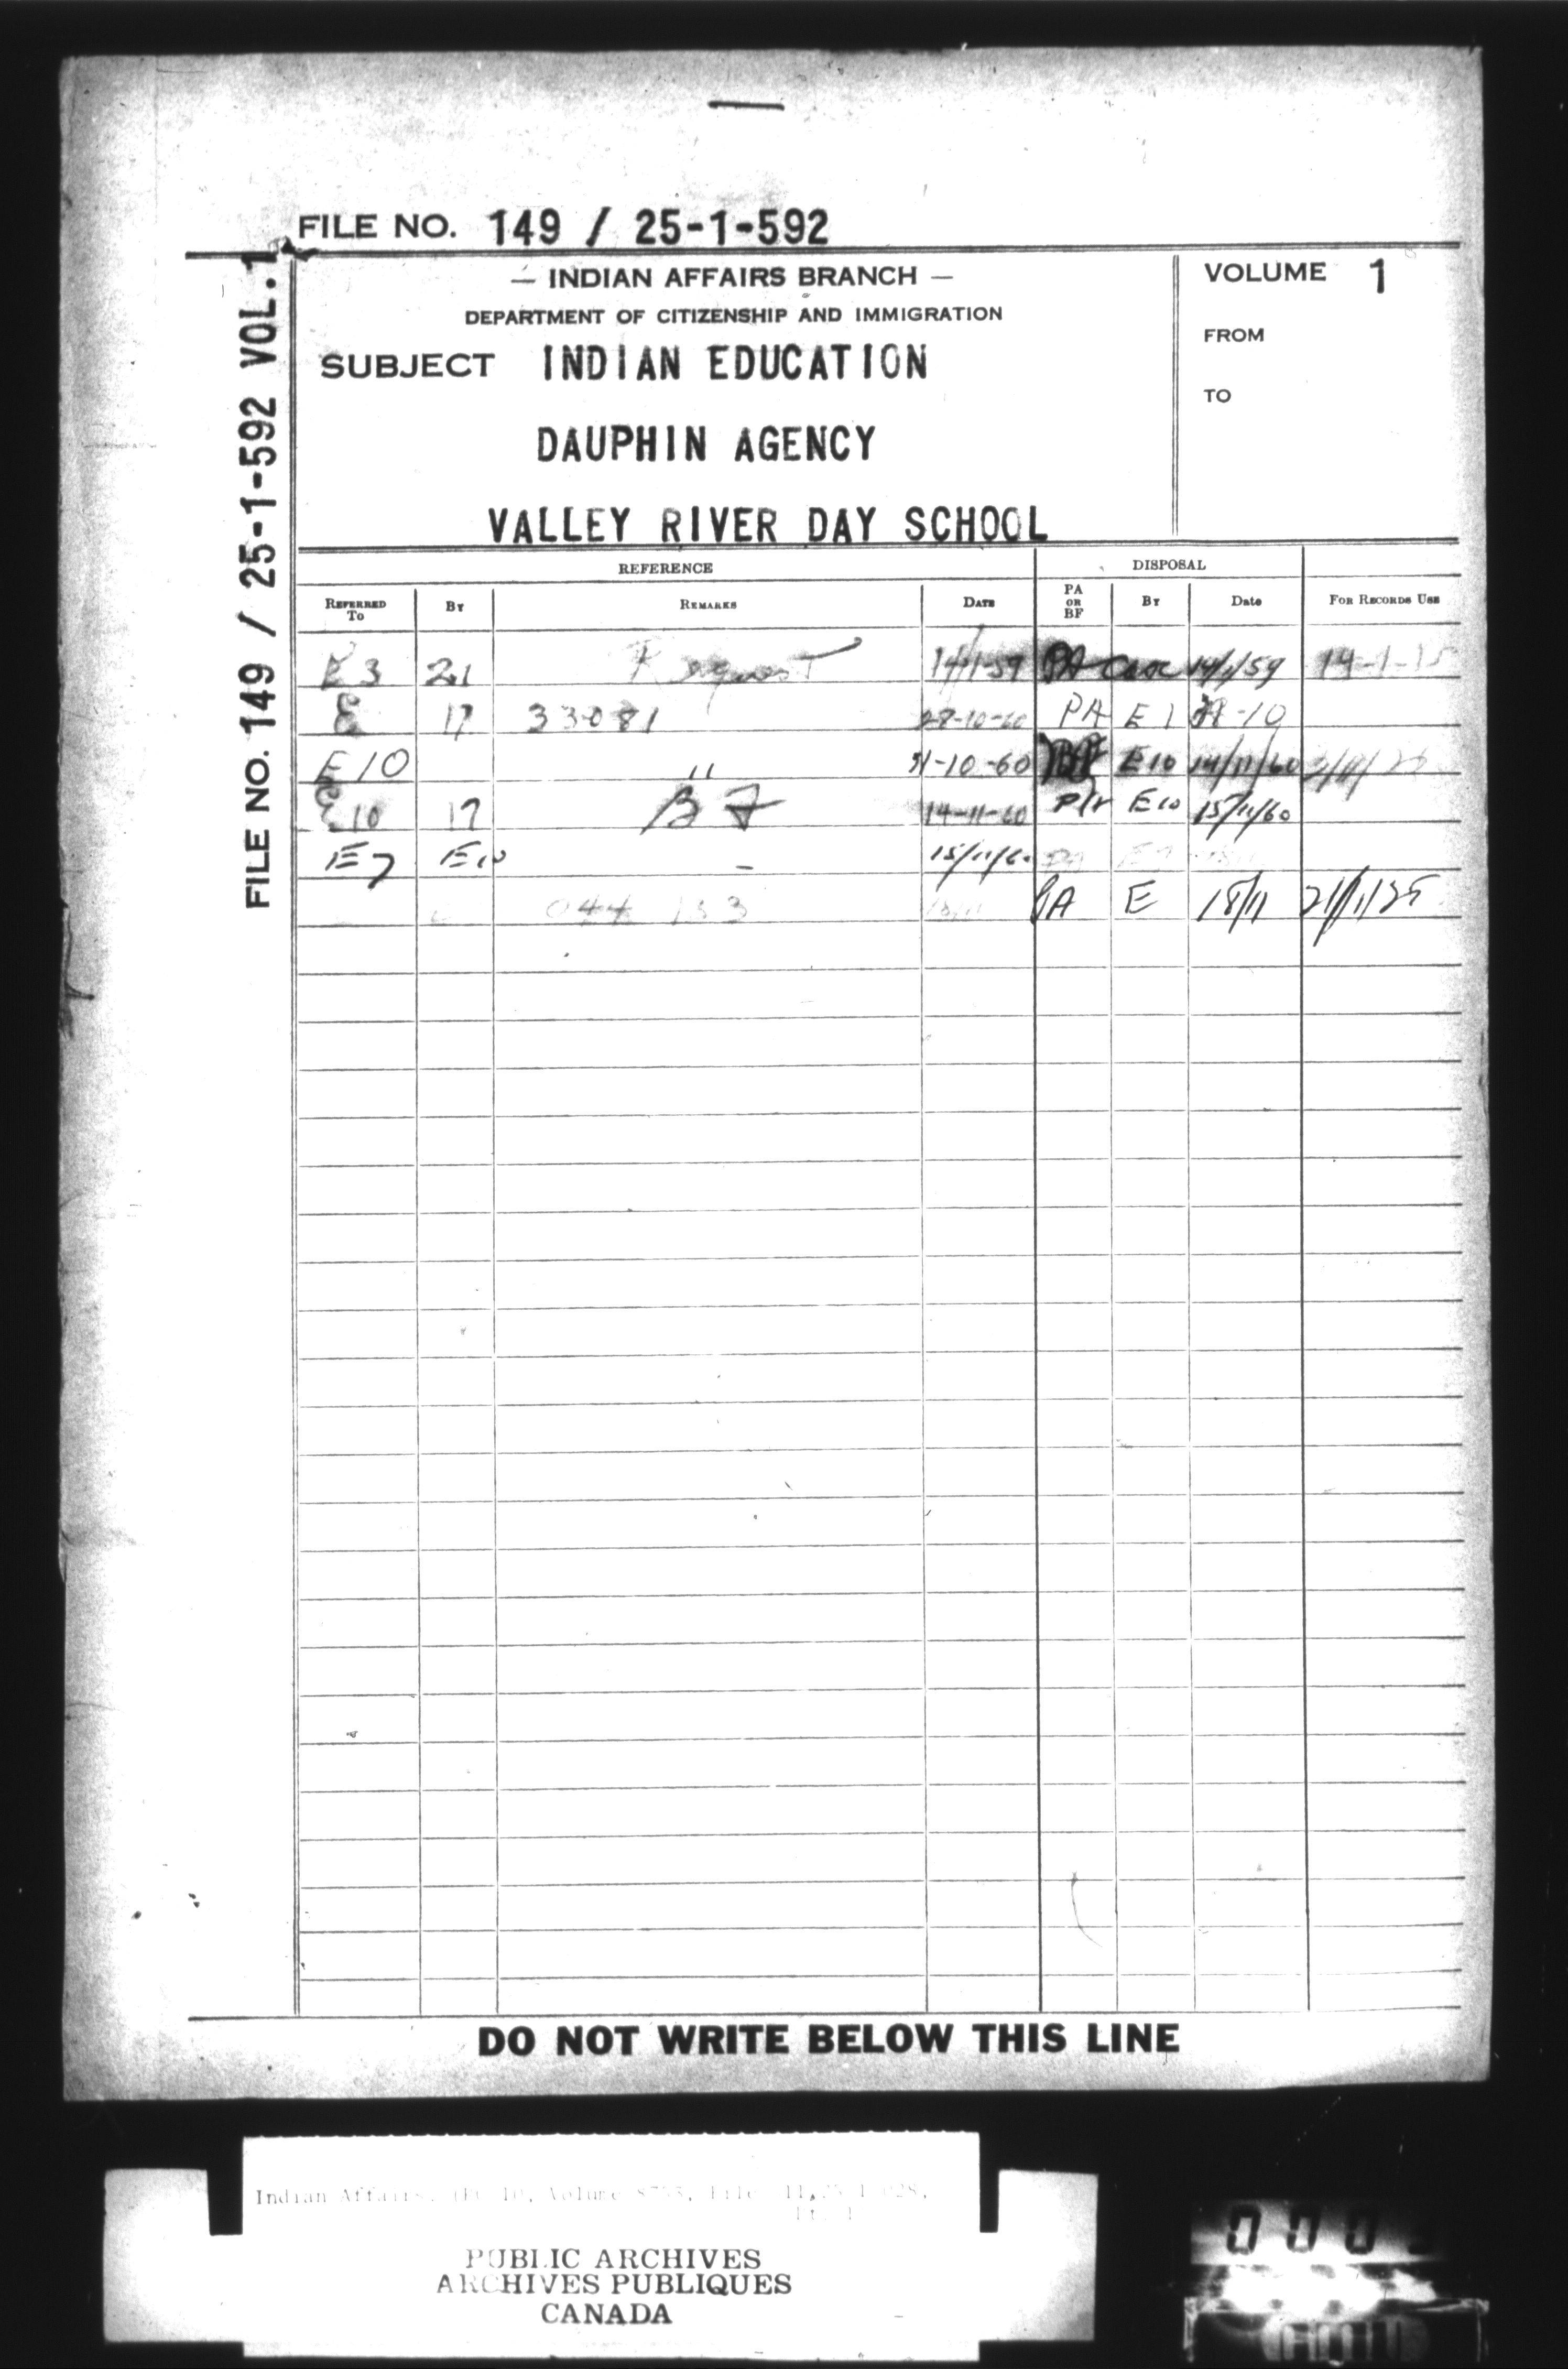 FILE NO. 149 / 25-1-592
FILE NO. 149 / 25-1-592 VOL. 1
— INDIAN AFFAIRS BRANCH —
DEPARTMENT OF CITIZENSHIP AND IMMIGRATION
SUBJECT INDIAN EDUCATION
DAUPHIN AGENCY
VALLEY RIVER DAY SCHOOL
VOLUME 1
FROM
TO
REFERENCE DISPOSAL
REFERRED TO BY REMARKS DATE PA OR BF BY Date FOR RECORDS USE
E3 21 Request 14/1-59 PA 14/1/59 14-1-15
E 17 33081 28-10-60 PA E1
E10 " 31-10-60 BF E10 14/11/60
E10 17 BF 14-11-60 E10 15/11/60
E7 E10 - 15/11/60
044 133 PA E 18/11 21/11/25
DO NOT WRITE BELOW THIS LINE
Indian Affairs
PUBLIC ARCHIVES
ARCHIVES PUBLIQUES
CANADA
000